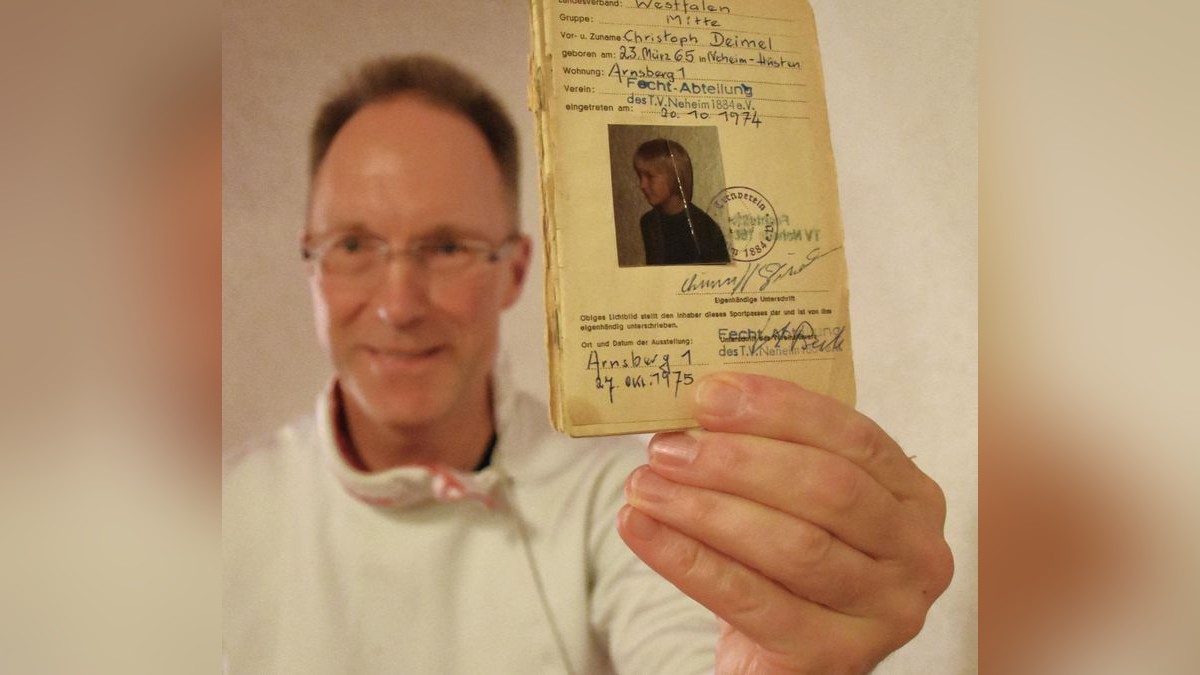 Landesverband: Westfalen
Gruppe: Mitte
Vor- u. Zuname Christoph Deimel
geboren am: 23. März 65 in Neheim-Hüsten
Wohnung: Arnsberg 1
Verein: Fecht-Abteilung
des T.V. Neheim 1884 e.V.
eingetreten am: 20. 10. 1974
Turnverein
1884 e.V.
TV Neheim
Eigenhändige Unterschrift
Obiges Lichtbild stellt den Inhaber dieses Sportpasses dar und ist von ihm
eigenhändig unterschrieben.
Ort und Datum der Ausstellung:
Fecht-Abteilung
des T.V. Neheim
Arnsberg 1
27. Okt. 1975